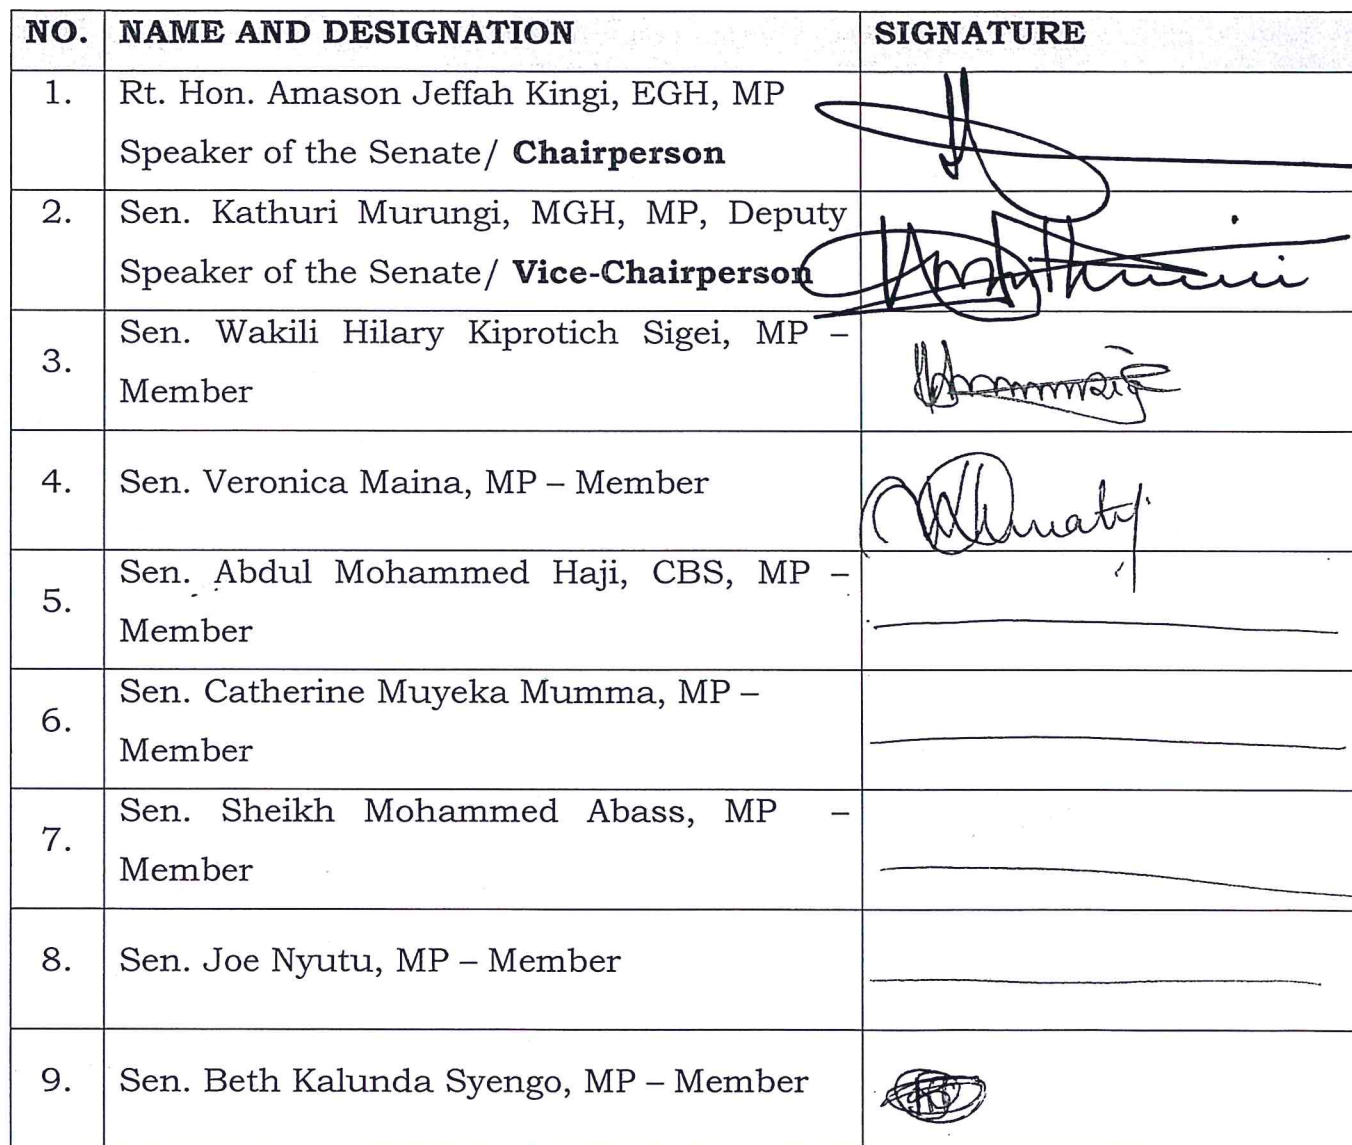 NO. NAME AND DESIGNATION SIGNATURE
1. Rt. Hon. Amason Jeffah Kingi, EGH, MP
Speaker of the Senate/ Chairperson
2. Sen. Kathuri Murungi, MGH, MP, Deputy
Speaker of the Senate/ Vice-Chairperson
3. Sen. Wakili Hilary Kiprotich Sigei, MP –
Member
4. Sen. Veronica Maina, MP – Member
5. Sen. Abdul Mohammed Haji, CBS, MP –
Member
6. Sen. Catherine Muyeka Mumma, MP –
Member
7. Sen. Sheikh Mohammed Abass, MP –
Member
8. Sen. Joe Nyutu, MP – Member
9. Sen. Beth Kalunda Syengo, MP – Member